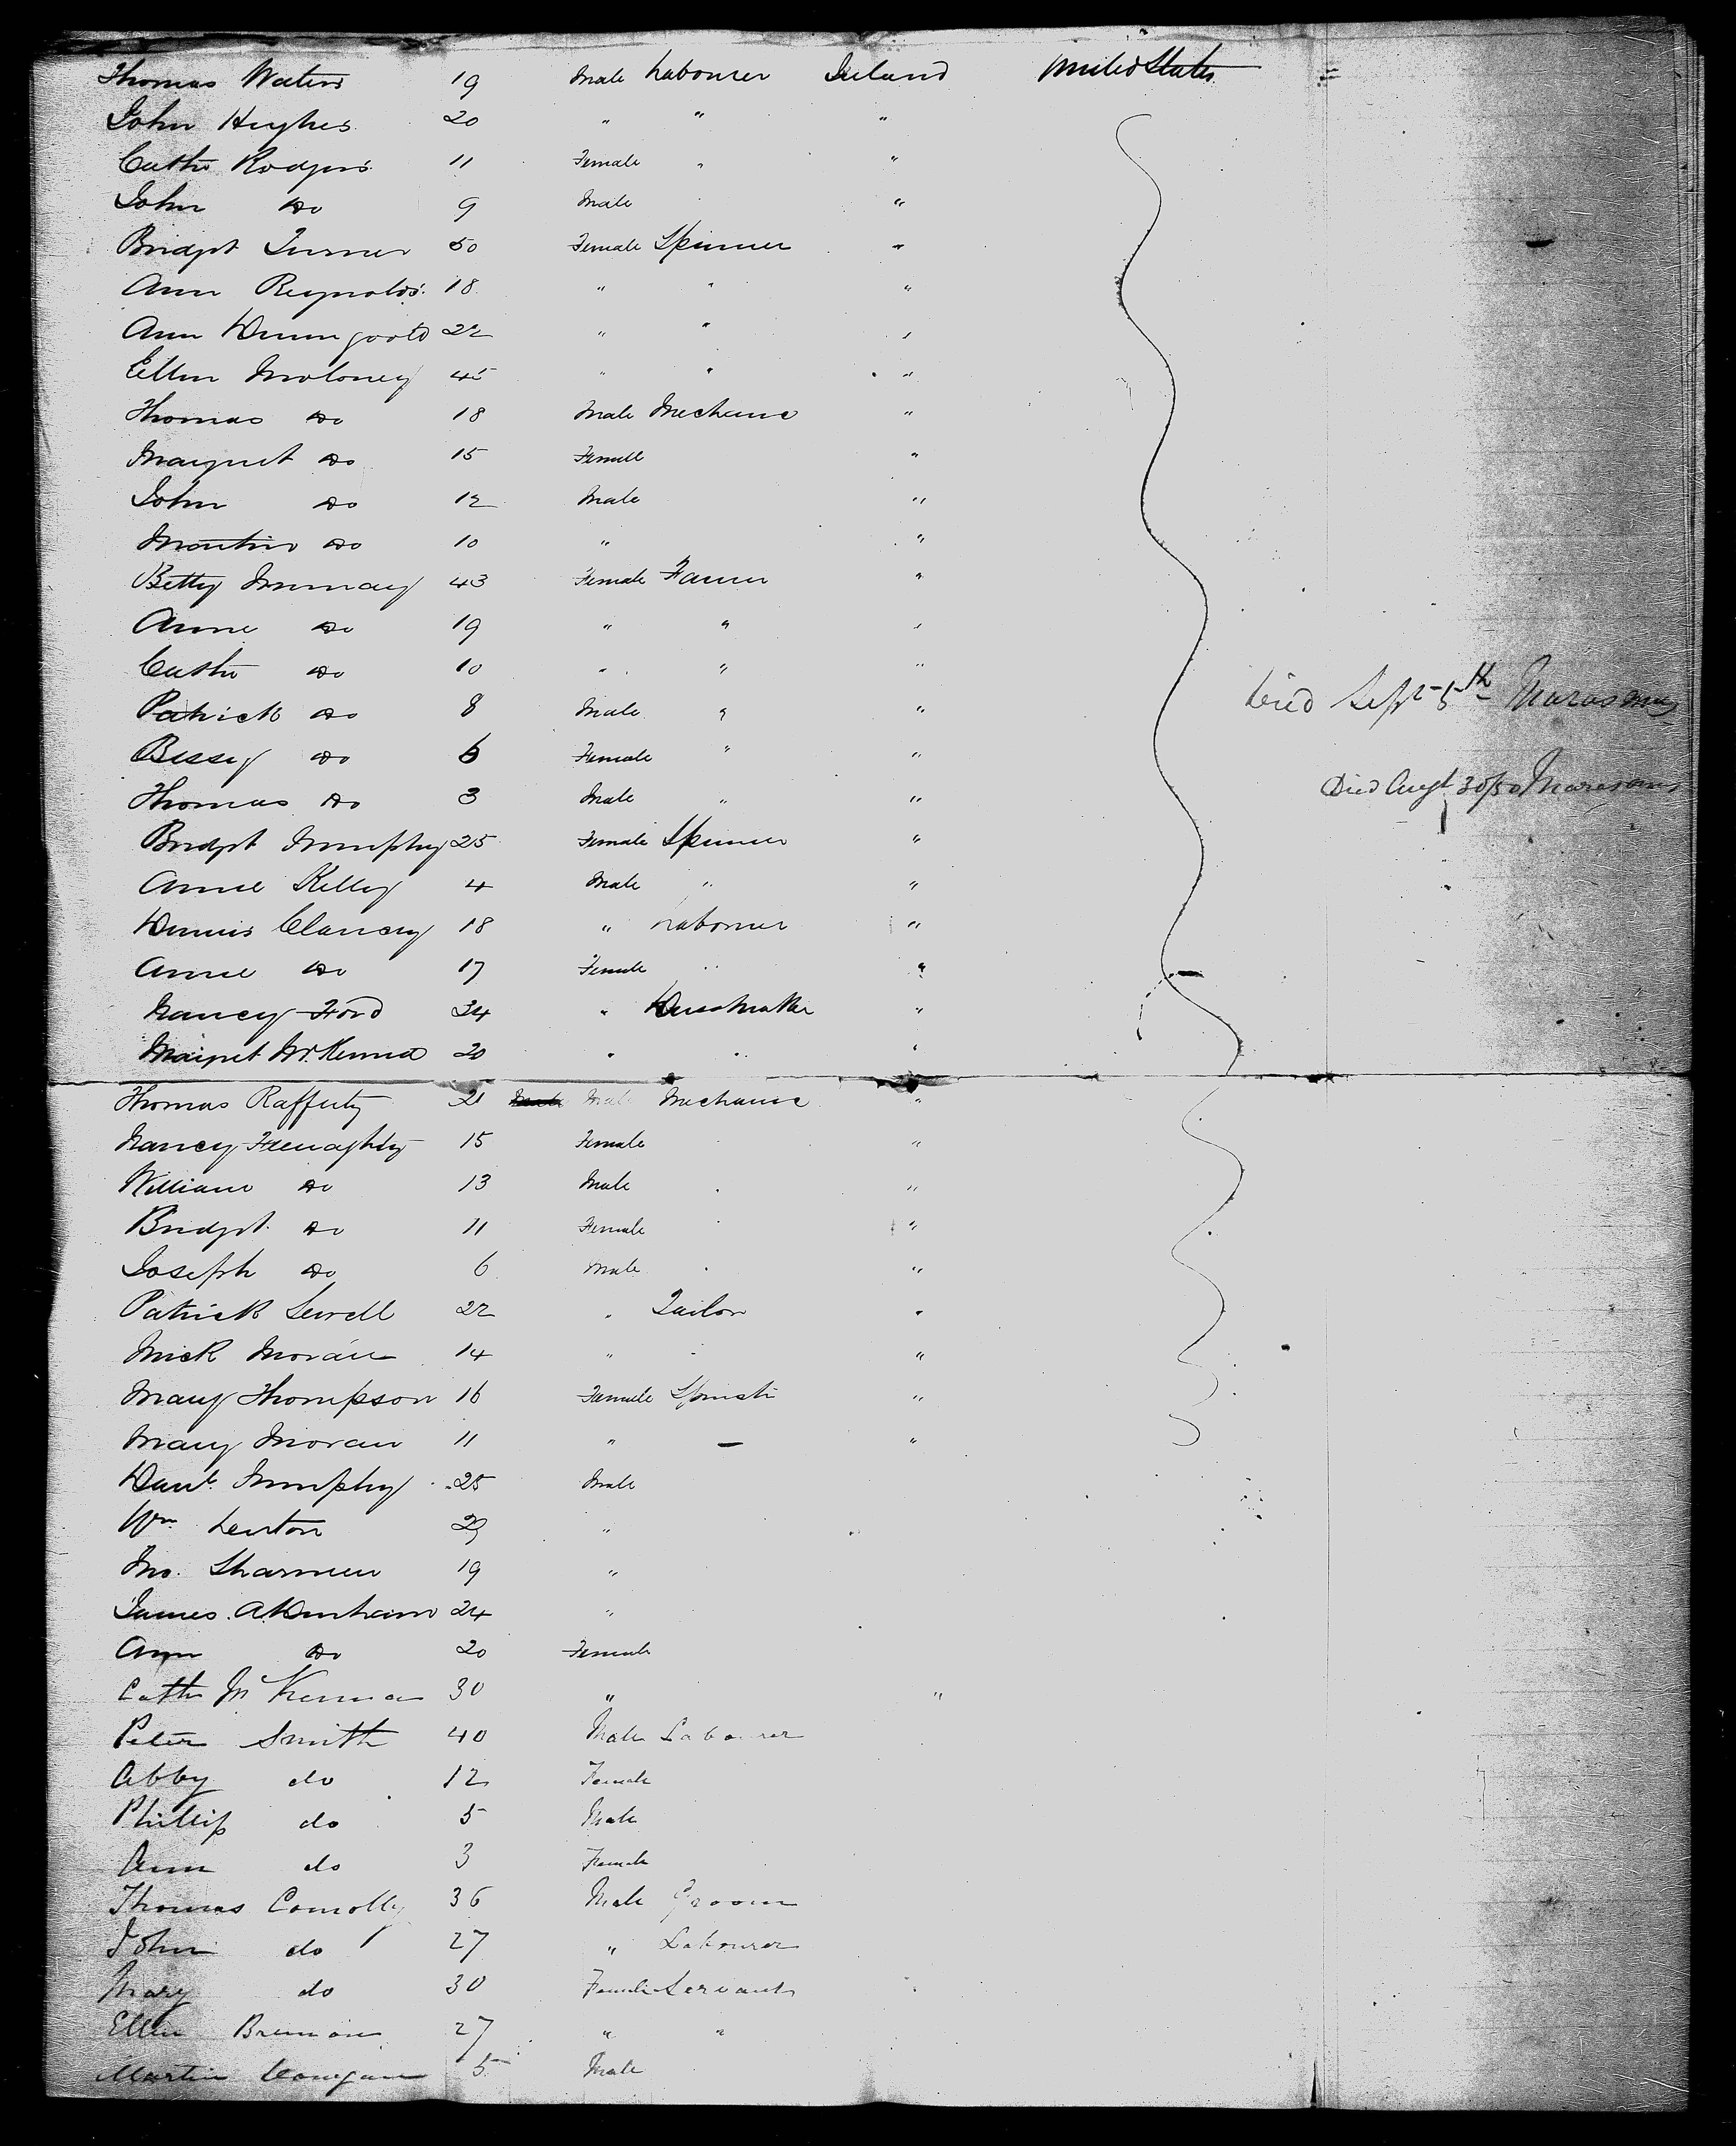 Thomas Waters 19 Male Labourer Ireland United States
John Hughes 20 " " "
Cathe Rodgers 11 Female " "
John Do 9 Male "
Bridgt Turner 50 Female Spinner "
Ann Reynolds 18 " " "
Ann Drumgoold 22 " " "
Ellen Moloney 45 " " "
Thomas Do 18 Male Mechanic "
Margret Do 15 Female "
John Do 12 Male "
Martin Do 10 " "
Betty Murray 43 Female Farmer "
Anne Do 19 " " "
Cathe Do 10 " " "
Patrick Do 8 Male " " Died Sept 5th Marasmus
Bessy Do 6 Female " "
Thomas Do 3 Male " " Died Augt 30/50 Marasmus
Bridgt Murphy 25 Female Spinner "
Anne Kelly 4 Male " "
Dennis Clancy 18 " Labourer "
Anne Do 17 Female " "
Nancy Ford 34 " Dressmaker "
Margret McKenna 20 " " "
Thomas Rafferty 21 Male Mechanic "
Nancy Fenaghty 15 Female "
William Do 13 Male "
Bridgt Do 11 Female "
Joseph Do 6 Male "
Patrick Sewell 22 " Tailor "
Mick Moran 14 " "
Mary Thompson 16 Female Spinstr "
Mary Moran 11 " — "
Danl. Murphy 25 Male
Wm Lenton 29 "
Jno. Sharmen 19 "
James A. Denham 24 "
Ann Do 20 Female
Cath McKenna 30 " "
Peter Smith 40 Male Labourer
Abby do 12 Female
Phillip do 5 Male
Ann do 3 Female
Thomas Connolly 36 Male Groom
John do 27 " Labourer
Mary do 30 Female Servant
Ellen Brennan 27 " "
Martin 5 Male